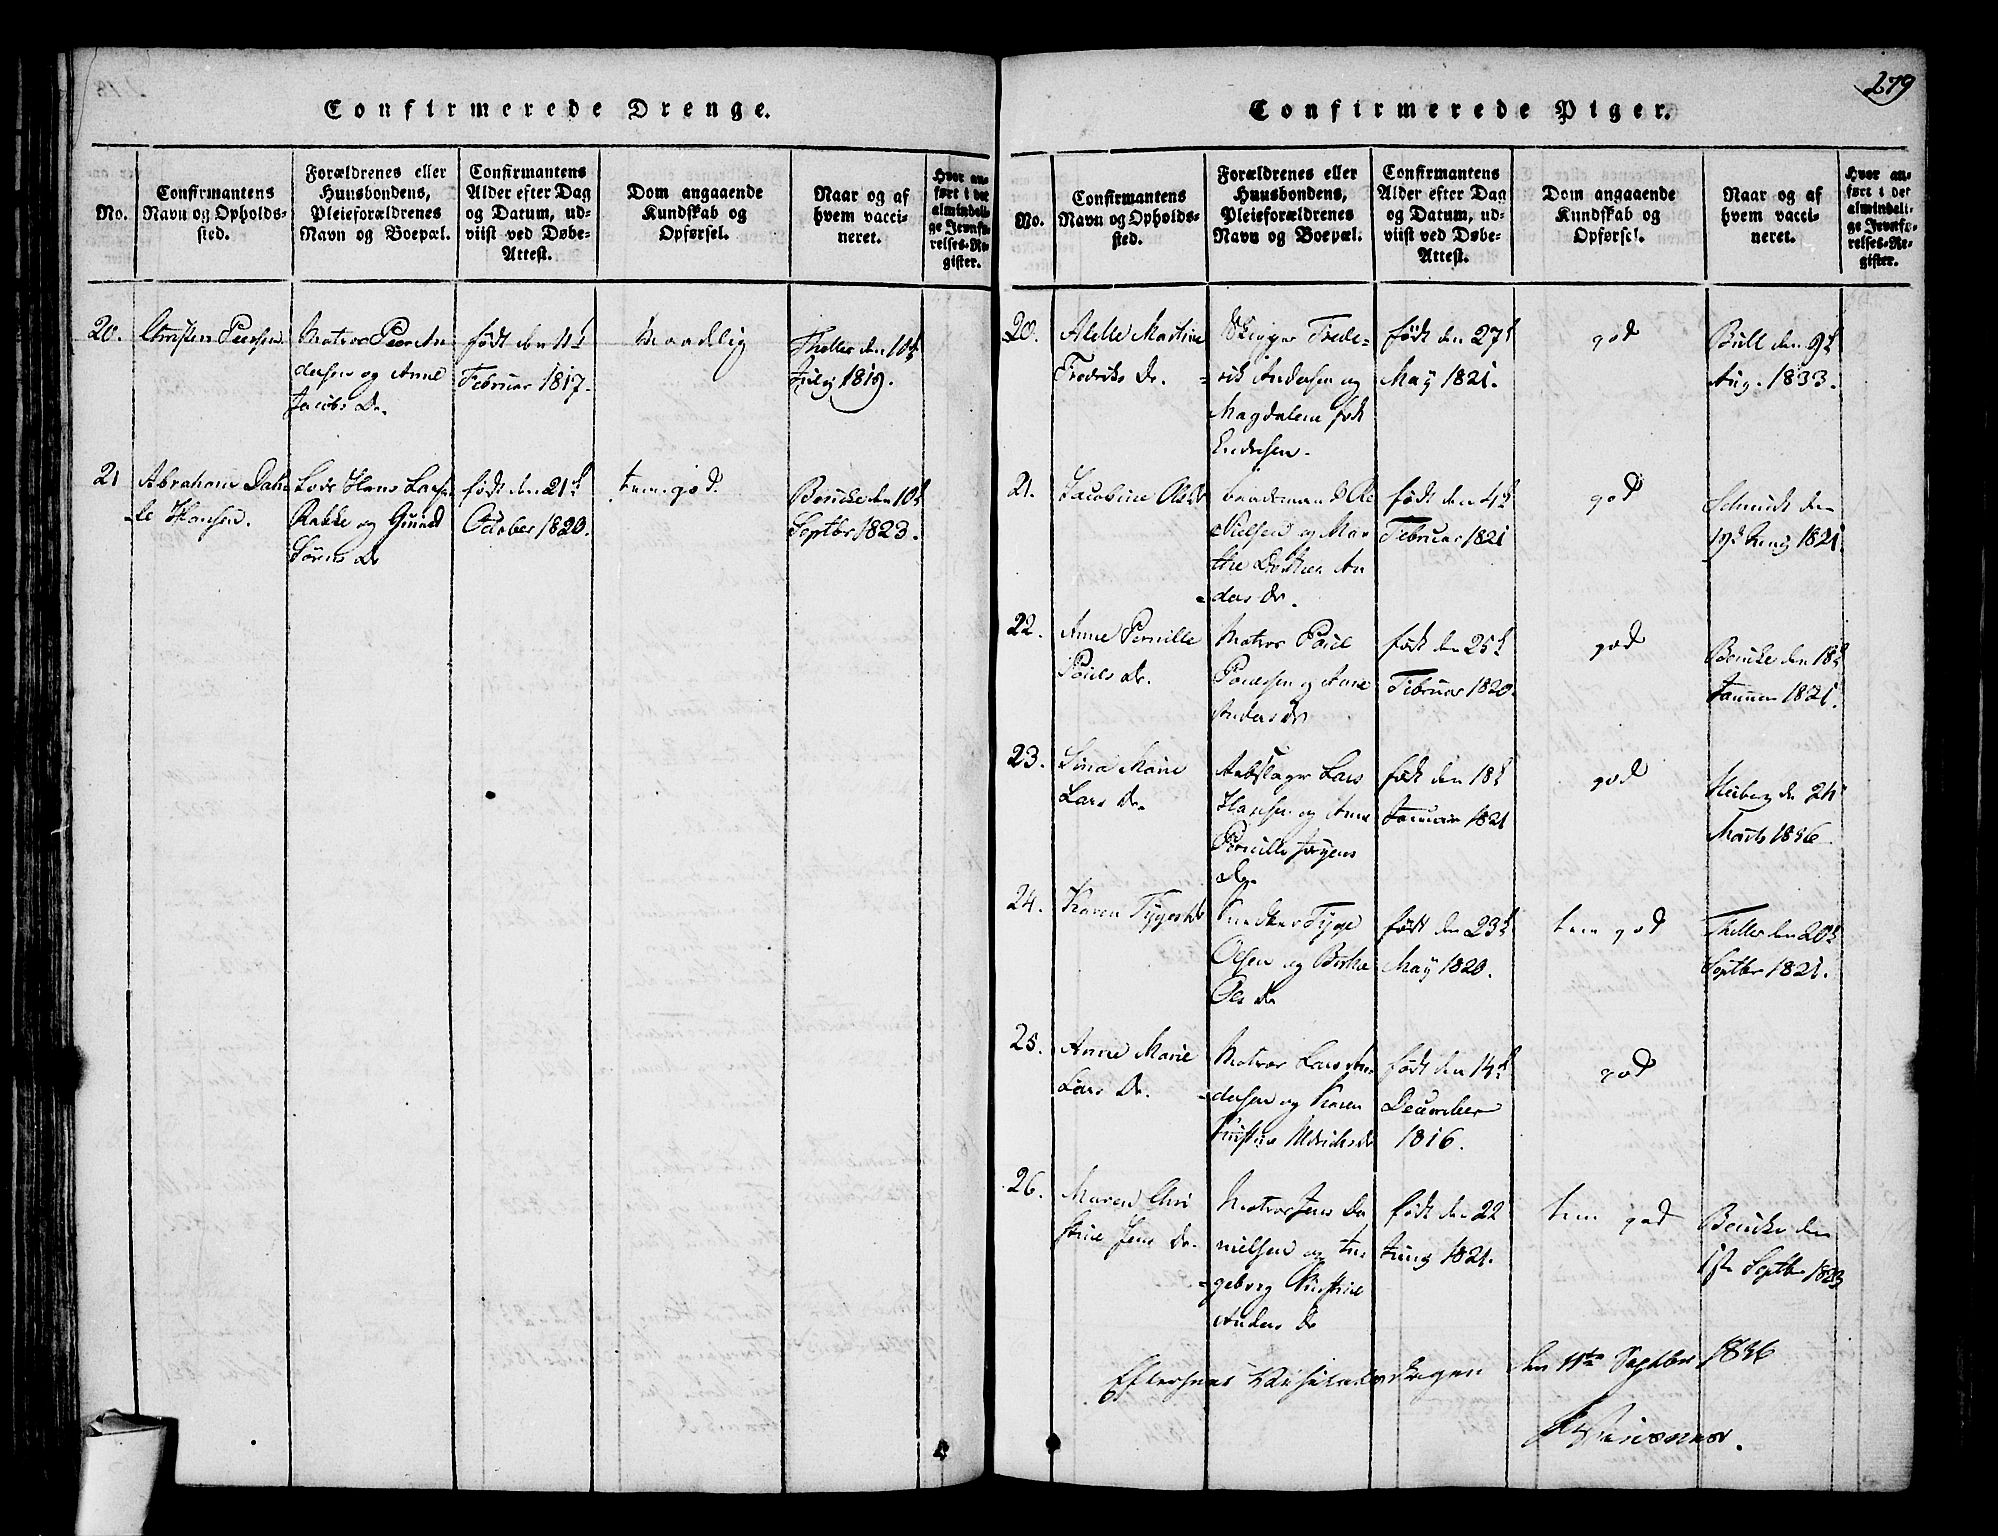 279
Confirmerede Drenge.
No.
Confirmantens
Navn og Opholds-
sted.
Forældrenes eller
Huusbondens,
Pleieforældrenes
Navn og Boepæl.
Confirmantens
Alder efter Dag
og Datum, ud-
viist ved Døbe-
Attest.
Dom angaaende
Kundskab og
Opførsel.
Naar og af
hvem vacci-
neret.
Hvor an-
ført i det
almindeli-
ge Jevnfø-
relses-Re-
gister.
20.
Christen Peersen
Matros Peer An
dersen og Anne
Jacobs Dr.
født den 11t
Februar 1817.
maadlig
Theller den 10t
July 1819.
21
Abraham Dah
le Hansen.
Lods Hans Lars
Rakke og Gunild
Sörens Dr
født den 21t
October 1820.
tem. god.
Bencke den 10t
Septbr 1823.
Confirmerede Piger.
No.
Confirmantens
Navn og Opholds-
sted.
Forældrenes eller
Huusbondens,
Pleieforældrenes
Navn og Boepæl.
Confirmantens
Alder efter Dag
og Datum, ud-
viist ved Døbe-
Attest.
Dom angaaende
Kundskab og
Opførsel.
Naar og af
hvem vacci-
neret.
Hvor an-
ført i det
almindeli-
ge Jevnfø-
relses-Re-
gister.
20.
Martine
Fredriks Dr.
Frede=
rik Andersen og
Magdalena født
Endresen.
født den 27t
May 1821.
god
Bull den 9t
Aug. 1833.
21.
Jacobine Ols Dr
Baadsmand Ole
Nielsen og Mar
the Dorthea An
ders Dr.
født den 4t
Februar 1821
god
Schmidt den
1821
22.
Anne Pernille
Pouls Dr.
Matros Poul
Poulsen og Anne
Anders Dr
født den 25t
Februar 1820.
god
Bencke den 18t
Januar 1821.
23.
Sina Marie
Lars Dr.
Rebslager Lars
Hansen og Anne
Pernille Jörgens
Dr.
født den 18t
Januar 1821
god
Heiberg den 24
Marts 1836
24.
Karen Tyges Dr
Snedker Tyge
Olsen og Berthe
Ols Dr
født den 23t
May 1820.
tem god
Theller den 20t
Septbr 1821.
25.
Anne Marie
Lars Dr.
Matros Lars An
dersen og Karen
Kirstine Uldrichs Dr
født den 14t
December
1816.
god
26.
Maren Chri
stine Jens Dr.
Matros Jens Da
nielsen og In
geborg Kirstine
Anders Dr
født den 22
Juny 1821.
tem god
Bencke den
1st Septbr 1823
Eftersees Visitatsbogen den 11te Septbr 1836